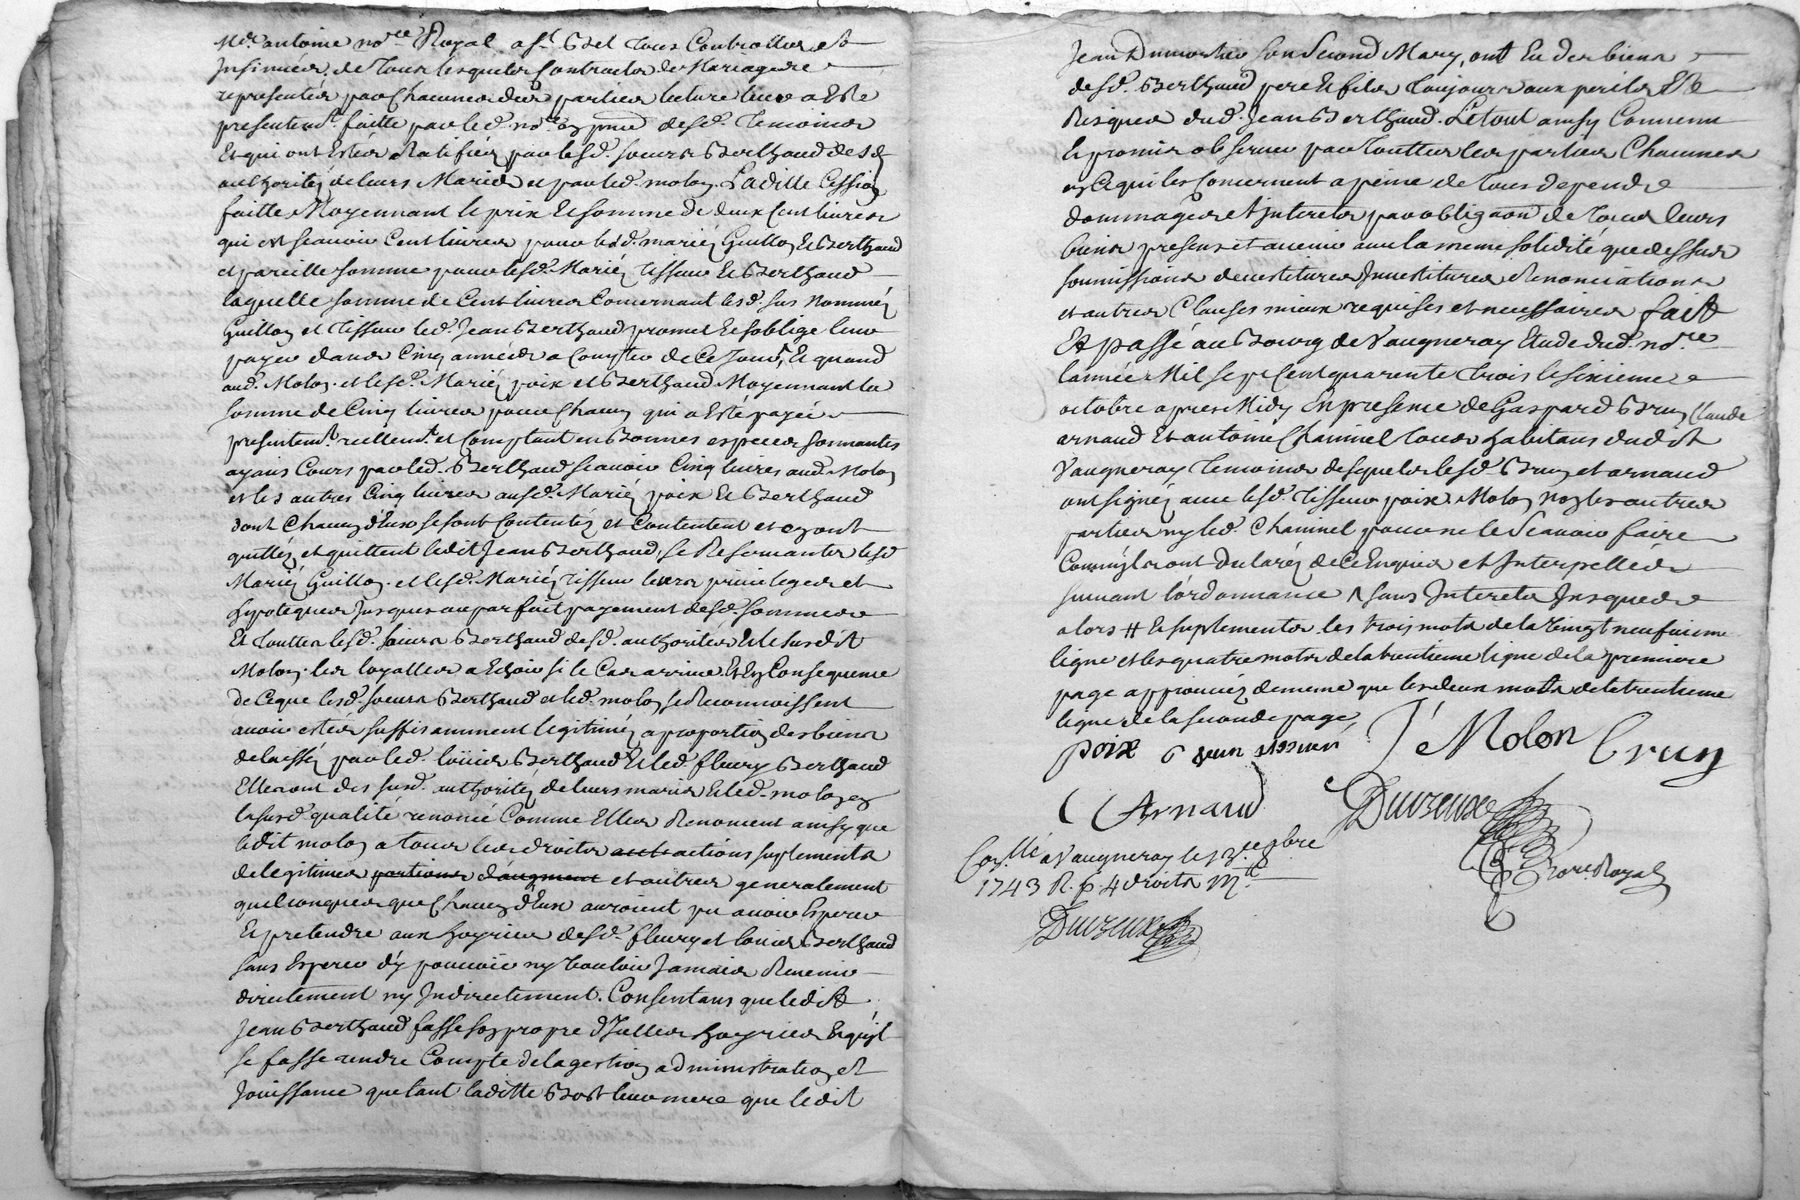 Me. antoine nore. Royal a st. Bel tous Controllés et
Insinués, de tous lesquels Contracts de Mariage
representés par Chacunes des parties lecture leur a Esté
presentemt. faitte par led. nore. en pnce desd. temoins
Et qui ont Estés Ratifiés par lesd. soeurs Berthaud
authorité de leurs Maris et par led. molon. Laditte Cession
faitte Moyennant le prix Et somme de deux Cent livres
qui est scavoir Cent livres pour lesd. mariés Guillon Et Berthaud
et pareille somme pour lesd. Mariés tisseur Et Berthaud
laquelle somme de Cent livres Concernant lesd. sus nommés
Guillon et tisseur led. Jean Berthaud promet Et soblige leur
payer dans Cinq années a Compter de Ce Jour, Et quand
aud. Molon et lesd. Mariés poix et Berthaud Moyennant la
somme de Cinq livres pour Chacun qui a Esté payée
presentemt. reellemt. et Comptant en Bonnes especes sonnantes
ayans Cours par led. Berthaud scavoir Cinq livres aud. Molon
et les autres Cinq livres ausd. Mariés poix Et Berthaud
dont Chacun d'Eux se sont Contentés et Contentent et en ont
quittés et quittent ledit Jean Berthaud, se Reservants lesd.
Mariés Guillon et lesd. Mariés tisseur leurs privileges et
hypoteques Jusques au parfait payement desd. sommes
Et touttes lesd. soeurs Berthaud desd. authorités Et le susdit
Molon les loyalles a Echoir si le Cas arrive. Et En Consequence
de Ce que lesd. soeurs Berthaud et led. molon se Reconnoissent
avoir estés suffisamment legitimés a proportion des biens
delaissés par led. loüis Berthaud Et led. fleury Berthaud
Elles ont des susd. authorités de leurs maris Et led. molon en
la susd. qualité renoncé Comme Elles Renoncent ainsy que
ledit molon a tous les droits actions suplements
de legitimes portions d'augment et autres generalement
quelconques que Chacun d'Eux auroient pu avoir Esperer
Et pretendre aux hoyries desd. fleury et loüis Berthaud
sans Esperer d'y pouvoir ny Vouloir Jamais Revenir
directement ny Indirectement. Consentans que ledit
Jean Berthaud fasse son propre d'Icelles hoyries Et qu'il
se fasse rendre Compte de la gestion administration et
Jouissance que tant laditte leur mere que ledit
Jean Dumortier son second Mary, ont Eu des biens
desd. Berthaud pere Et fils toujours aux perils Et
Risques dud. Jean Berthaud. Le tout ainsy Convenu
Et promis observer par touttes les parties Chacunes
en Ce qui les Concernent a peine de tous depends
dommages et Interets par obligaon. de tous leurs
biens presens et avenir avec la meme solidité que dessus
soumissions devestitures Investitures Renonciations
et autres Clauses mieux requises et necessaires fait
Et passé au Bourg de Vaugneray Etude dud. nore.
l'année Mil sept Cent quarente trois le sixieme
octobre apres Midy En presence de Gaspard Brun Claude
arnaud Et antoine Chaninel tous habitans dudit
Vaugneray temoins desquels lesd. Brun et arnaud
ont signés avec lesd. tisseur poix Molon non les autres
parties ny led. Chaninel pour ne le Scavoir faire
Comm'ils ont Declarés de Ce Enquis et Interpellés
suivant l'ordonnance ^ sans Interets Jusques
alors # Et suplements les trois mots de la Vingt neufvieme
ligne et les quatre mots de la trentieme ligne de la premiere
page approuvés de meme que les deux mots de la trentieme
ligne de la seconde page,
poix Jean tisseur J Molon brun
C Arnaud Duvzeux
nore. Royal
Conllé a Vaugneray le 13e. 8bre
1743 R. 6 4 droits
Duvzeux